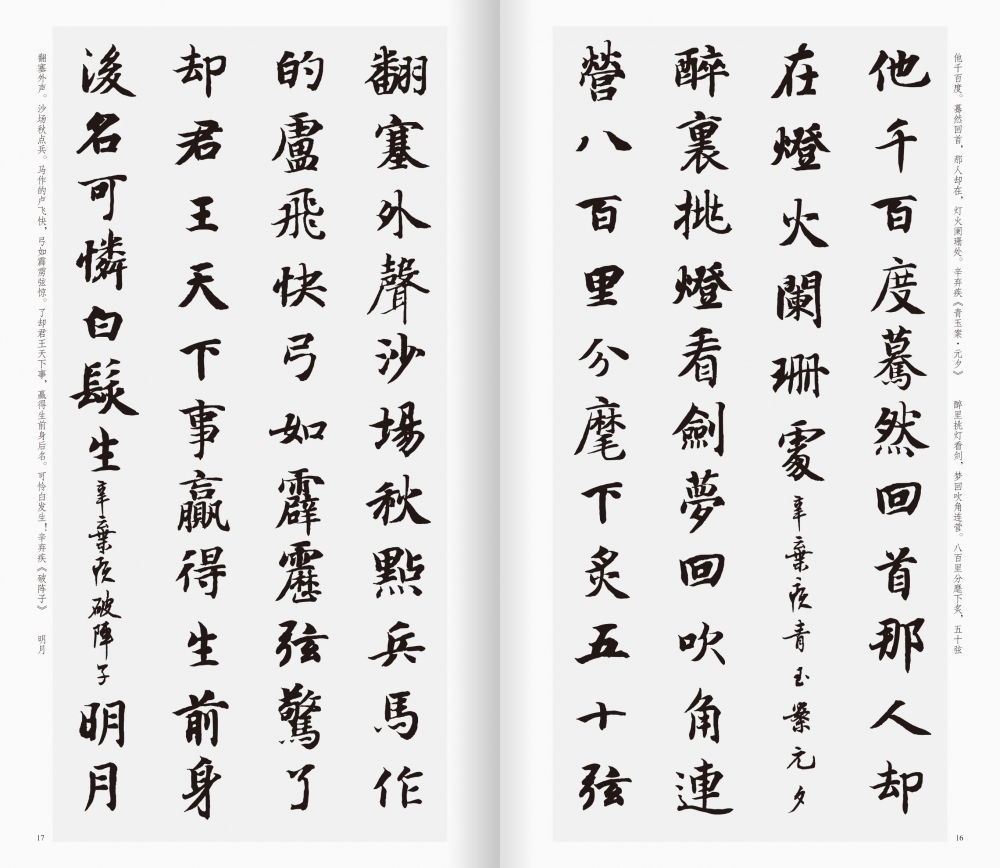 他千百度。蓦然回首，那人却在，灯火阑珊处。辛弃疾《青玉案·元夕》　醉里挑灯看剑，梦回吹角连营。八百里分麾下炙，五十弦
他千百度驀然回首那人却
在燈火闌珊處辛棄疾青玉案元夕
醉裏挑燈看劍夢回吹角連
營八百里分麾下炙五十弦
16
翻塞外聲沙場秋點兵馬作
的盧飛快弓如霹靂弦驚了
却君王天下事贏得生前身
後名可憐白髮生辛棄疾破陣子明月
翻塞外声。沙场秋点兵。马作的卢飞快，弓如霹雳弦惊。了却君王天下事，赢得生前身后名。可怜白发生！辛弃疾《破阵子》　明月
17